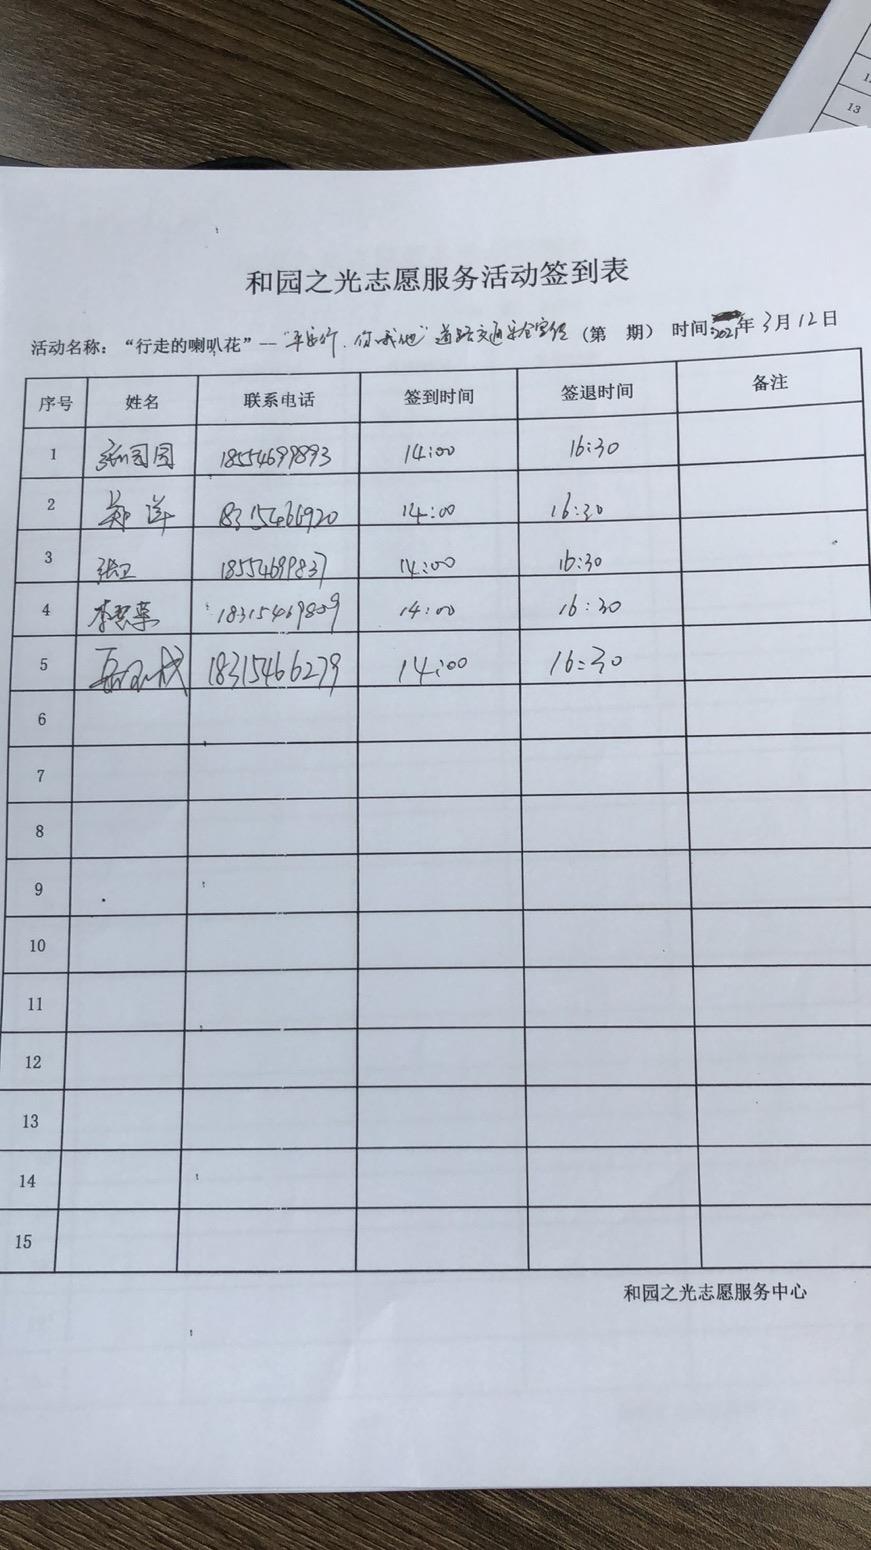 13
和园之光志愿服务活动签到表
活动名称：“行走的喇叭花”—“平安行，你我他”道路交通安全宣传（第 期） 时间：2021年3月12日
序号 姓名 联系电话 签到时间 签退时间 备注
1 张园园 18554699893 14:00 16:30
2 郑萍 18315466920 14:00 16:30
3 张卫 18554699837 14:00 16:30
4 李慧 18315469809 14:00 16:30
5 18315466279 14:00 16:30
6
7
8
9
10
11
12
13
14
15
和园之光志愿服务中心